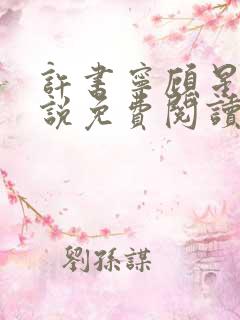 許書寧顧星
說免費閱讀
劉孫謀